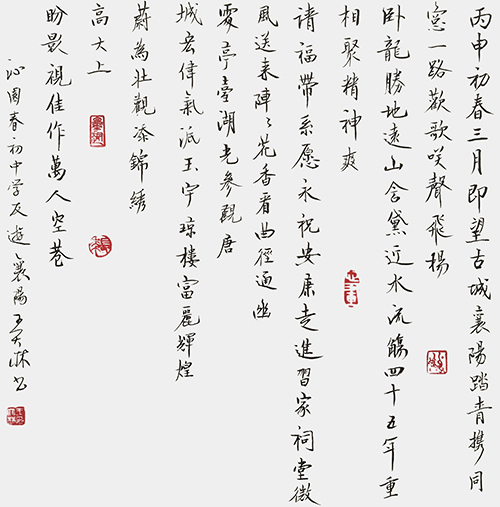 丙申初春三月即望古城襄陽踏青携同
窓一路歡歌咲聲飛揚
卧龍勝地遠山含黛近水流觴四十五年重
相聚精神爽
请福带系愿永祝安康走進習家祠堂微
風送来陣々花香看曲徑通幽
亭臺湖光參觀唐
城宏偉氣派玉宇琼樓富麗輝煌
蔚為壮觀添錦綉
高大上
盼影視佳作萬人空巷
沁園春·初中学友遊襄陽王天林书